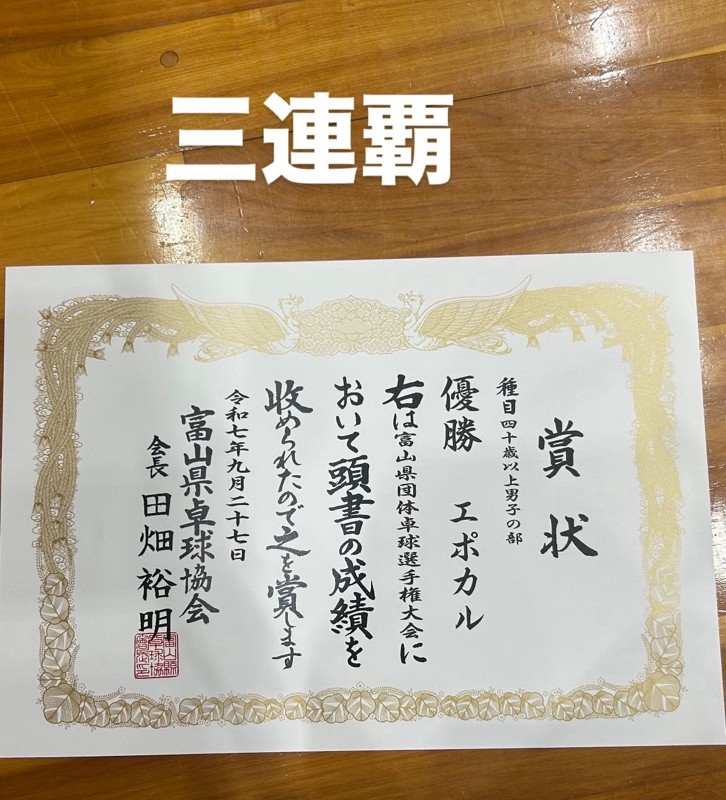 三連覇
賞状
種目四十歳以上男子の部
優勝 エポカル
右は富山県団体卓球選手権大会に
おいて頭書の成績を
収められたので之を賞します
令和七年九月二十七日
富山県卓球協会
会長 田畑裕明